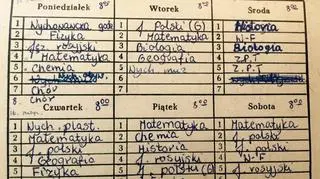 Poniedziałek 8⁰⁰
1 Wychowawcza godz
2 Fizyka
3 jęz rosyjski
4 Matematyka
5 Chemia
6
7 Chór
8 Chór
Wtorek 8⁰⁰
1 j. Polski (G)
2 Matematyka
3 Biologia
4 Geografia
5 Wych muz
6
7
Środa
1 Historia
2 W-F
3 Biologia
4 Z.P.T
5 Z.P.T
6
7
Czwartek 8⁰⁰
1 Wych. plast.
2 Matematyka
3 j. polski
4 Geografia
5 Fizyka
Piątek 8⁰⁰
1 Matematyka
2 Chemia
3 Historia
4 j. rosyjski
5 j. polski (G)
Sobota 8⁰⁰
1 Matematyka
2 j. polski
3 j. polski
4 W-F
5 j. rosyjski